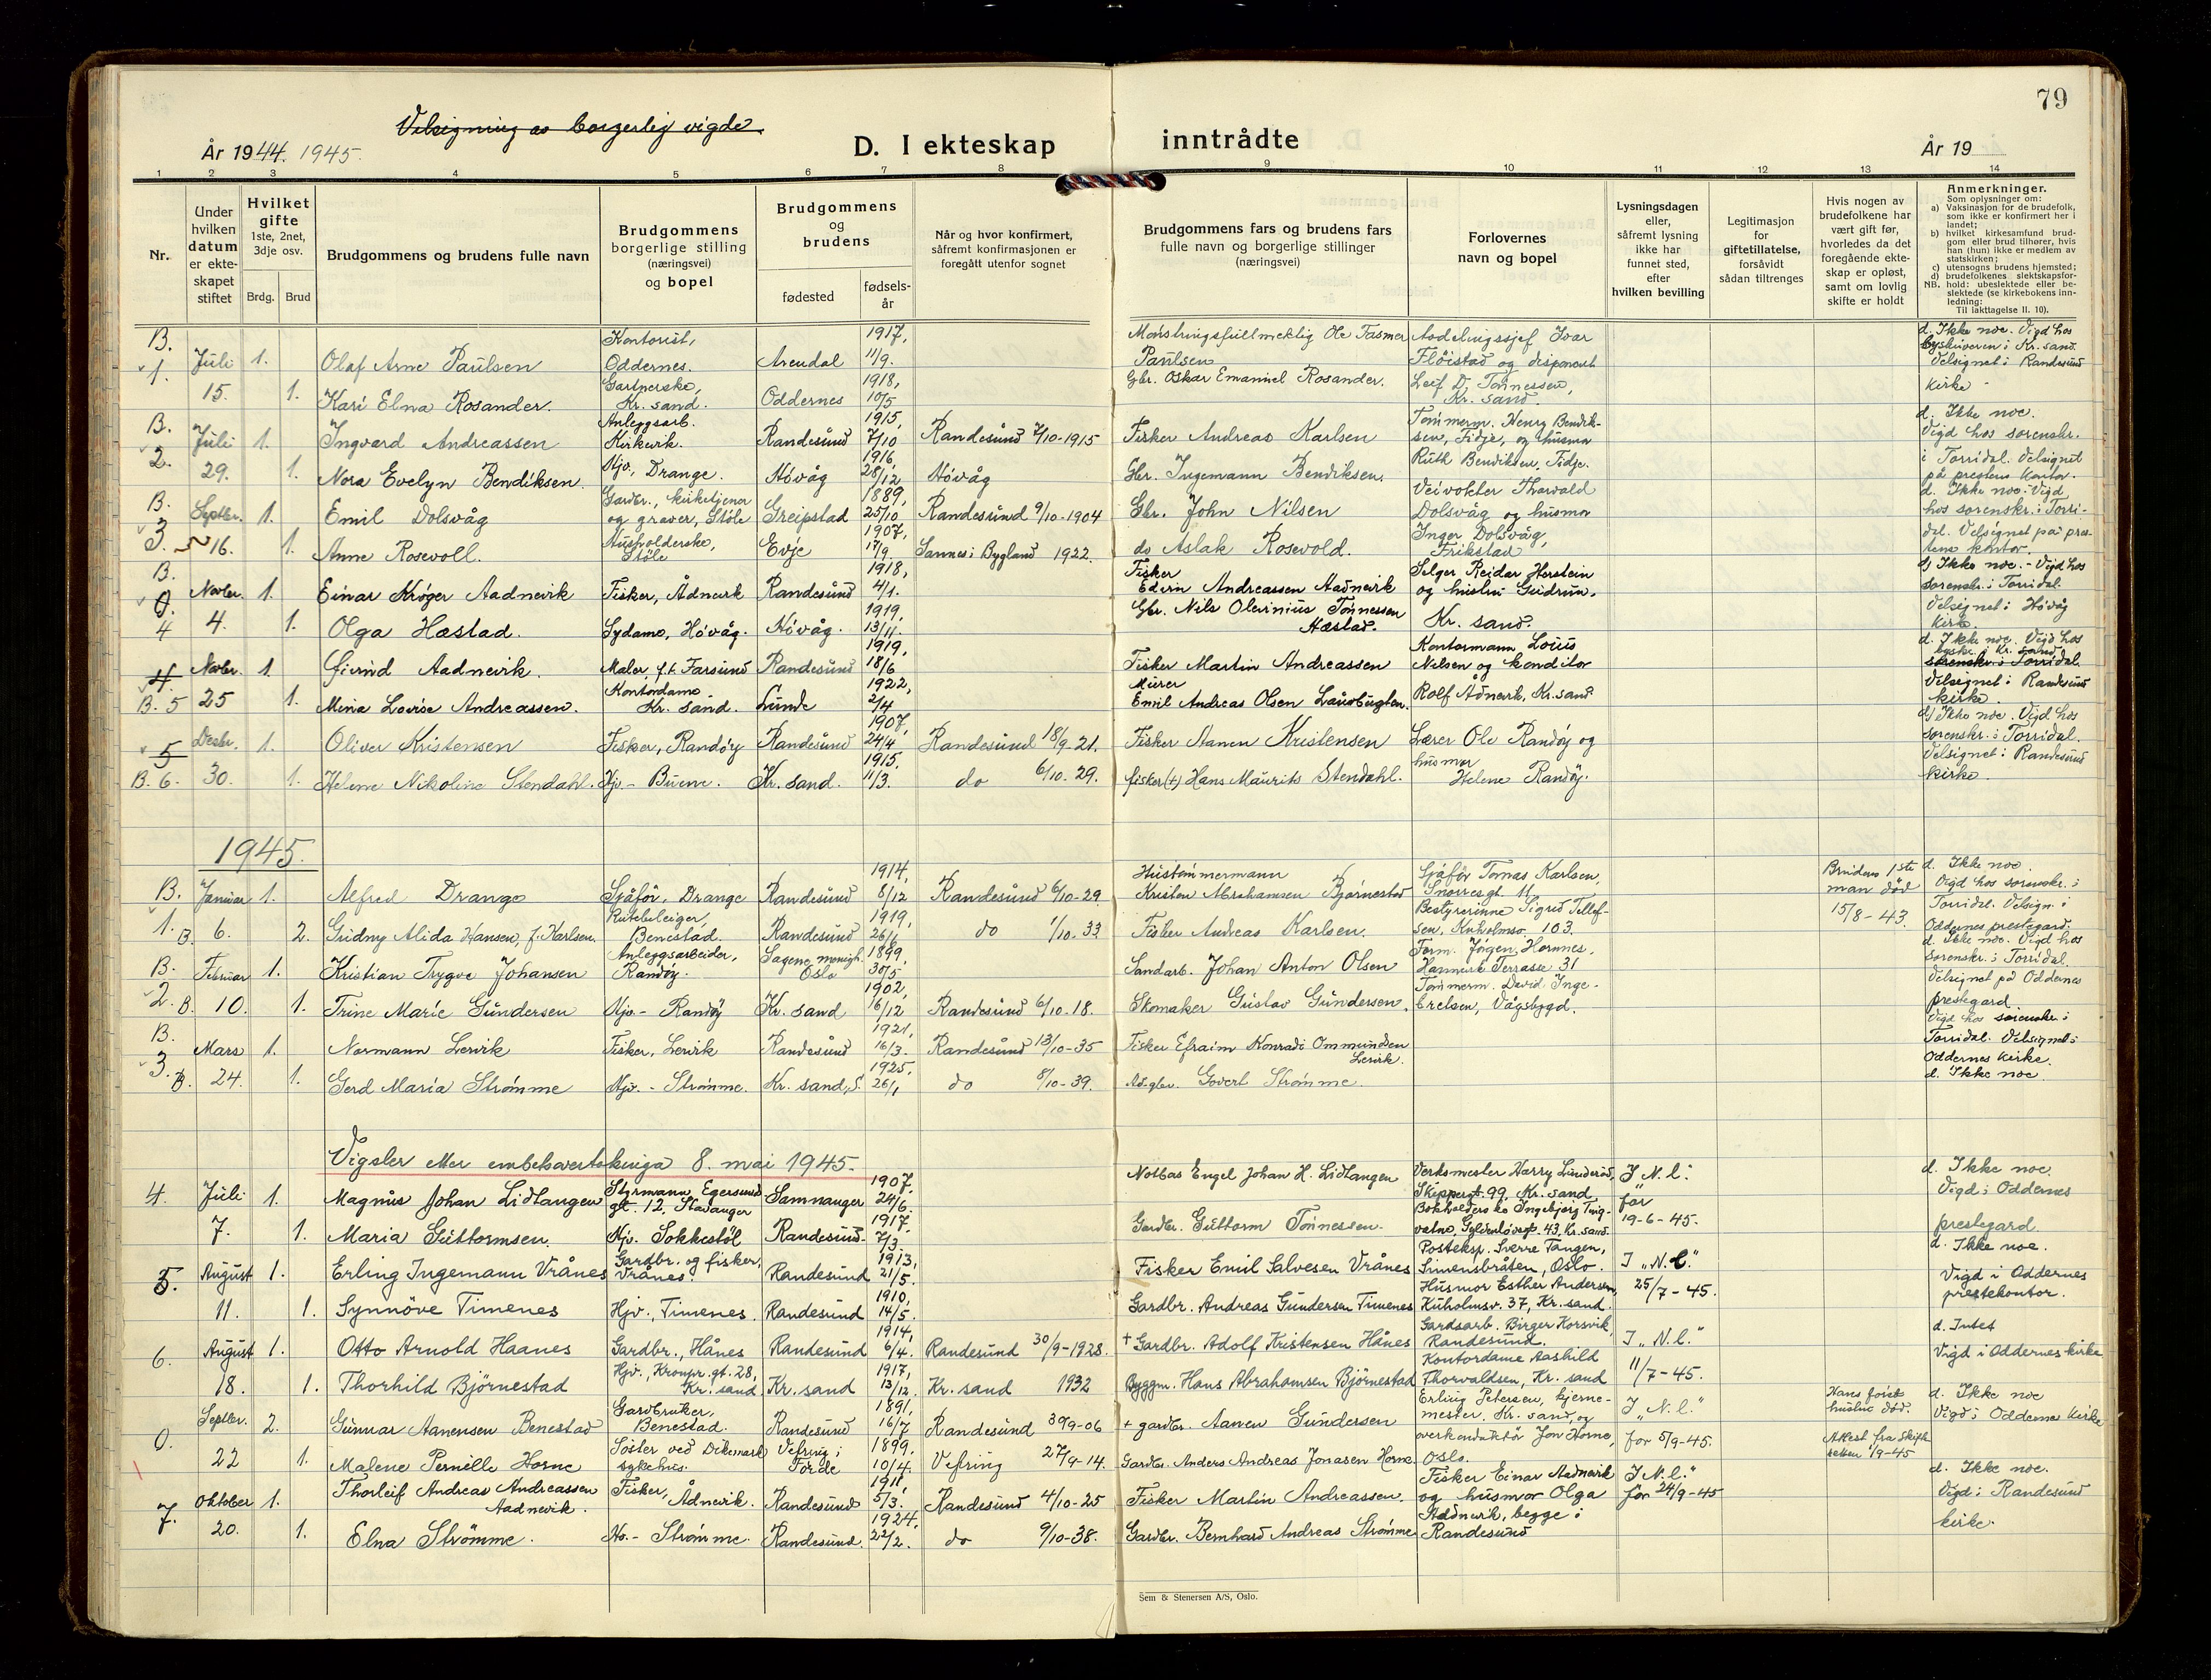 79
Velsigning av borgerlig vigde.
År 1944. 1945.
D. I ekteskap inntrådte
År 19
1 2 3 4 5 6 7 8 9 10 11 12 13 14
Nr.
Under hvilken datum er ekteskapet stiftet
Hvilket gifte 1ste, 2net, 3dje osv.
Brdg. Brud
Brudgommens og brudens fulle navn
Brudgommens borgerlige stilling (næringsvei) og bopel
Brudgommens og brudens
fødested
fødselsår
Når og hvor konfirmert, såfremt konfirmasjonen er foregått utenfor sognet
Brudgommens fars og brudens fars fulle navn og borgerlige stillinger (næringsvei)
Forlovernes navn og bopel
Lysningsdagen eller, såfremt lysning ikke har funnet sted, efter hvilken bevilling
Legitimasjon for giftetillatelse, forsåvidt sådan tiltrenges
Hvis nogen av brudefolkene har vært gift før, hvorledes da det foregående ekteskap er opløst, samt om lovlig skifte er holdt
Anmerkninger.
Som oplysninger om:
a) Vaksinasjon for de brudefolk, som ikke er konfirmert her i landet;
b) hvilket kirkesamfund brudgom eller brud tilhører, hvis han (hun) ikke er medlem av statskirken;
c) utensogns brudens hjemsted;
d) brudefolkenes slektskapsforhold: ubeslektede eller beslektede (se kirkebokens innledning:
NB.
Til iakttagelse II. 10).
B. 1. Juli 1. Olaf Arne Paulsen Kontorist, Oddernes. Arendal 1917, 11/9. Mønstringsfullmektig Ole Tasmer Paulsen Avdelingssjef Ivar Fløistad og disponent d. Ikke noe. Vigd hos byskriveren i Kr. sand. Velsignet i Randesund
15. 1. Kari Elna Rosander. Gartnerske, Kr. sand. Oddernes 1918, 10/5 Gbr. Oskar Emanuel Rosander. Leif D. Tønnessen, Kr. sand. kirke -
B. 2. Juli 1. Ingvard Andreassen Anleggsarb. Kirkevik. Randesund 1915, 7/10 Randesund 2/10-1915 Fisker Andreas Karlsen Tømmerm. Henry Bendiksen, Fidje, og husmor d. Ikke noe. Vigd hos sorenskr.
29. 1. Nora Evelyn Bendiksen. Hjv., Drange. Høvåg 1916 28/12 Høvåg Gbr. Ingemann Bendiksen. Ruth Bendiksen, Fidje. i Torridal. Velsignet på prestens kontor.
B. 3. Septbr. 1. Emil Dolsvåg Gardbr., kirketjener og graver, Støle Greipstad 1889, 25/10 Randesund 9/10-1904 Gbr. John Nilsen Veivokter Thorvald Dolsvåg og husmor d. Ikke noe. Vigd hos sorenskr. i Torri-
16. 1. Anne Rosevoll. Husholderske, Støle Evje 1907, 17/9 Sannes i Bygland 1922. do Aslak Rosevold. Inger Dolsvåg, Frikstad del. Velsignet på prestens kontor.
B. 4 Novbr. 1. Einar Krøger Aadnevik Fisker, Ådnevik Randesund 1918, 4/1. Fisker Edvin Andreassen Aadnevik Selger Reidar Herstein og hustru Gudrun, d) Ikke noe. - Vigd hos sorenskr. i Torridal.
4. 1. Olga Hæstad. Sydame, Høvåg. Høvåg. 1919, 13/11. Gbr. Nils Olevinius Tønnessen Hæstad. Kr. sand. Velsignet i Høvåg kirke.
4 Novbr. 1. Øivind Aadnevik. Maler, f.t. Farsund Randesund 1919, 18/6 Fisker Martin Andreassen Kontormann Louis Nilsen og konditor d. Ikke noe. Vigd hos byskr. i Kr. sand sorenskr. i Torridal.
B. 5 25 1. Mina Lovise Andreassen. Kontordame Kr. sand. Lunde 1922, 2/4 Murer Emil Andreas Olsen Rolf Ådnevik, Kr. sand. Velsignet i Randesund kirke.
5 Desbr. 1. Oliver Kristensen Fisker, Randøy Randesund 1907, 24/4 Randesund 18/9-21. Fisker Aanen Kristensen Lærer Ole Randøy og d) Ikke noe. Vigd hos sorenskr. i Torridal.
B. 6. 30. 1. Helene Nikoline Stendahl. Hjv. - Buene. Kr. sand. 1915. 11/3. do 6/10-29. fisker (+) Hans Maurits Stendahl. husmor Helene Randøy. Velsignet i Randesund kirke.
1945.
B. 1. Januar 1. Alfred Drange Sjåfør, Drange Randesund 1914, 8/12 Randesund 6/10-29 Hustømmermann Kristen Abrahamsen Bjørnestad Sjåfør Tomas Karlsen, Snorresgt. 11 Brudens 1ste man død d. Ikke noe. Vigd hos sorenskr. i
B. 6. 2. Gudny Alida Hansen, f. Karlsen. Rutebileiger, Benestad. Randesund 1919, 26/1 do 1/10-33 Fisker Andreas Karlsen. Bestyrerinne Sigrid Tellefsen, Kuholmsv. 103. 15/8-43. Torridal. Velsign. i Oddernes prestegard.
B. 2. Februar 1. Kristian Trygve Johansen Anleggsarbeider, Randøy. Sagene menigh. Oslo 1899, 30/5 Sandarb. Johan Anton Olsen Form. Jørgen Hornnes, Hannevik Terrasse 31 d. Ikke noe. Vigd hos sorenskr. i Torridal.
B. 10. 1. Trine Marie Gundersen Hjv. - Randøy Kr. sand 1902, 16/12 Randesund 6/10-18. Skomaker Gustav Gundersen. Tømmerm. David Ingebretsen, Vågsbygd. Velsignet på Oddernes prestegard.
B. 3. Mars 1. Normann Lervik Fisker, Lervik Randesund 1921, 16/3. Randesund 13/10-35 Fisker Efraim Konradi Ommundsen Lervik. Vigd hos sorenskr. i Torridal. Velsignet i
B. 24. 1. Gerd Maria Strømme Hjv. - Strømme. Kr. sand, S. 1925. 26/1 do 8/10-39. Govert Strømme. Oddernes Kirke. d. Ikke noe
Vigsler etter 8. mai 1945.
4. Juli 1. Magnus Johan Lidtangen Styrmann, Egersund gt. 12, Stavanger Samnanger 1907. 24/6. Notbas Engel Johan H. Lidtangen Verksmester Harry Skippergt. 99, Kr. sand J "N.l." for d. Ikke noe. Vigd i Oddernes
7. 1. Maria Guttormsen. Hjv. Sokkestøl Randesund. 1917. 7/3. Gardbr. Guttorm Tønnessen. Bokholderske Ingebjørg Gyldenløvesgt. 43, Kr. sand. 19-6-45. prestegard
5. August 1. Erling Ingemann Vrånes Gardbr. og fisker, Vrånes. Randesund 1913, 21/5. Fisker Emil Salvesen Vrånes Posteksp. Sverre Tangen, Simensbråten, Oslo. I "N.l." d. Ikke noe.
11. 1. Synnöve Timenes Hjv., Timenes. Randesund 1910, 14/5. Gardbr. Andreas Gundersen Timenes Husmor Esther Andersen, Kuholmsv. 37, Kr. sand. 25/7-45. Vigd i Oddernes prestekontor.
6. August 1. Otto Arnold Haanes Gardbr., Hånes Randesund 1914, 6/4. Randesund 30/9-1928. + Gardbr. Adolf Kristensen Hånes Gardsarb. Birger Korsvik, Randesund. I "N.l." d. Intet
18. 1. Thorhild Björnestad Hjv., Kronpr. gt. 28, Kr. sand Kr. sand 1917, 13/12. Kr. sand 1932 Byggm. Hans Abrahamsen Björnestad Kontordame Aashild Thorvaldsen, Kr. sand 11/7-45. Vigd i Oddernes kirke
0. Septbr. 2. Gunnar Aanensen Benestad Gardbruker, Benestad. Randesund 1891, 16/7 Randesund 30/9-06 + gardbr. Aanen Gundersen Erling Petersen, hjernemester, Kr. sand, og J "N.l." Hans første hustru død. d. Ikke noe Vigd i Oddernes Kirke
22 1. Malene Pernille Horne Søster ved Dikemark sykehus. Vefring i Førde 1899. 10/4. Vefring 27/9-14. Gardbr. Anders Andreas Jonasen Horne. Jon Horne, Oslo. for 5/9-45. Attest fra Skifteretten 19-45
7. Oktober 1. Thorleif Andreas Andreassen Aadnevik. Fisker, Ådnevik. Randesund 1911, 5/3. Randesund 4/10-25 Fisker Martin Andreassen. Fisker Einar Aadnevik og husmor Olga J "N.l." for 24/9-45 d. Ikke noe. Vigd i Randesund
20. 1. Elna Strømme. Hv. - Strømme. Randesund. 1924. 22/2. do 9/10-38. Gardbr. Bernhard Andreas Strømme Aadnevik, begge i Randesund kirke.
Sem & Stenersen A/S, Oslo.